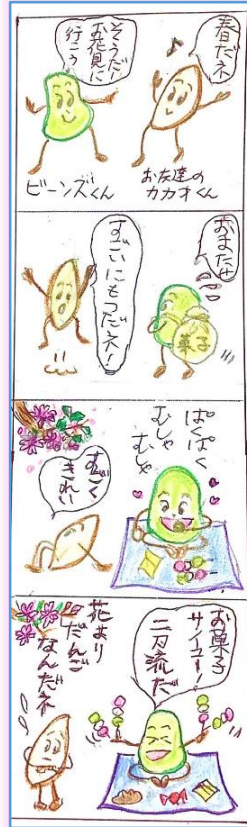 春だネ
♪
そうだ!
お花見に
行こう
お友達の
カカオくん
ビーンズくん
おまたせ
菓子
すごい
にもつだネ!
ぱくぱく
むしゃ
むしゃ
すごく
きれい
お菓子
サイコー!
二刀流だ
花より
だんご
なんだネ